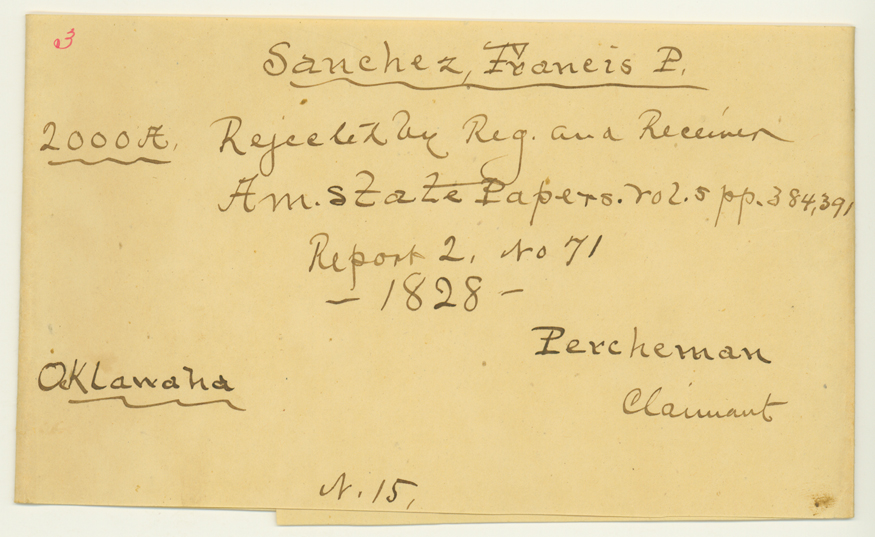 3
Sanchez, Francis P.
2000 A. Rejected by Reg. and Receiver
Am. State Papers. Vol. 5 pp. 384, 391
Report 2. No 71
- 1828 -
Percheman
Oklawaha
Claimant
N. 15.